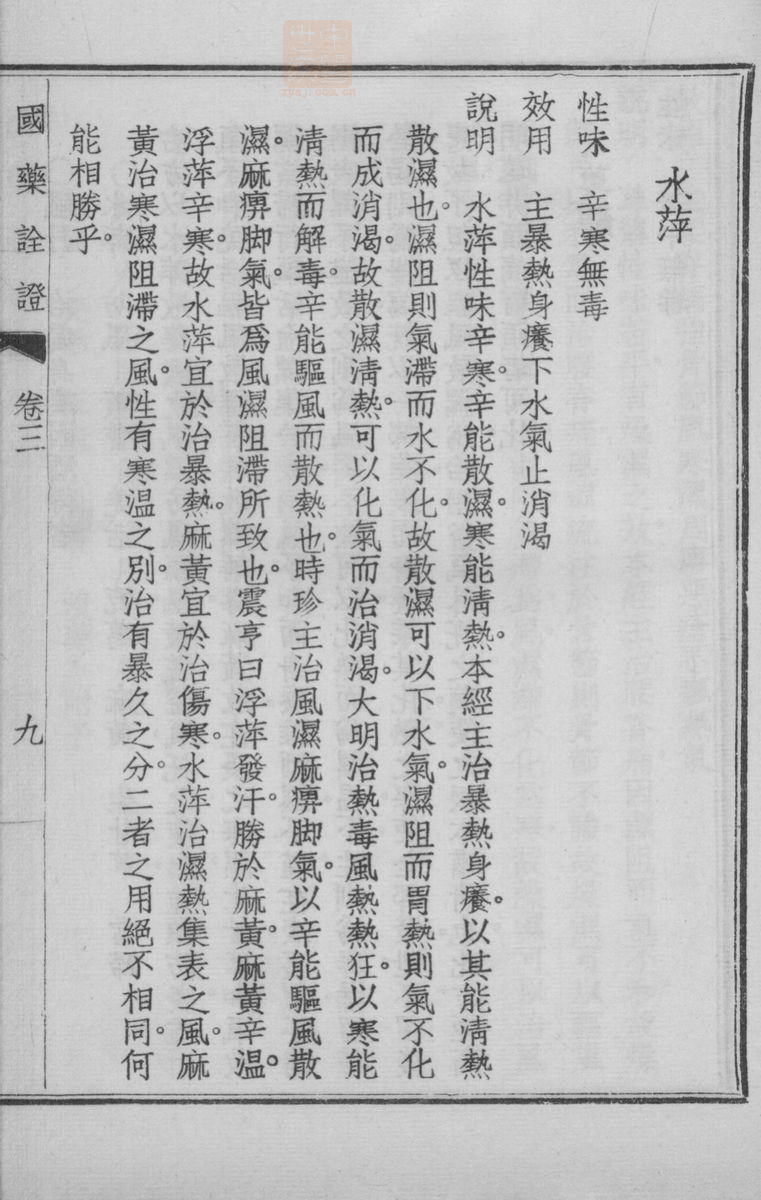 水萍
性味　辛寒無毒
效用　主暴熱身癢下水氣止消渴
說明　水萍性味辛寒。辛能散濕。寒能淸熱。本經主治暴熱身癢。以其能淸熱
散濕也。濕阻則氣滯而水不化。故散濕可以下水氣。濕阻而胃熱則氣不化
而成消渴。故散濕淸熱。可以化氣而治消渴。大明治熱毒風熱熱狂。以寒能
淸熱而解毒。辛能驅風而散熱也。時珍主治風濕麻痹脚氣。以辛能驅風散
濕。麻痹脚氣。皆爲風濕阻滯所致也。震亨曰浮萍發汗。勝於麻黃。麻黃辛温。
浮萍辛寒。故水萍宜於治暴熱。麻黃宜於治傷寒。水萍治濕熱集表之風。麻
黃治寒濕阻滯之風。性有寒温之別。治有暴久之分。二者之用絕不相同。何
能相勝乎。
國藥詮證　卷三　九
zysj.com.cn